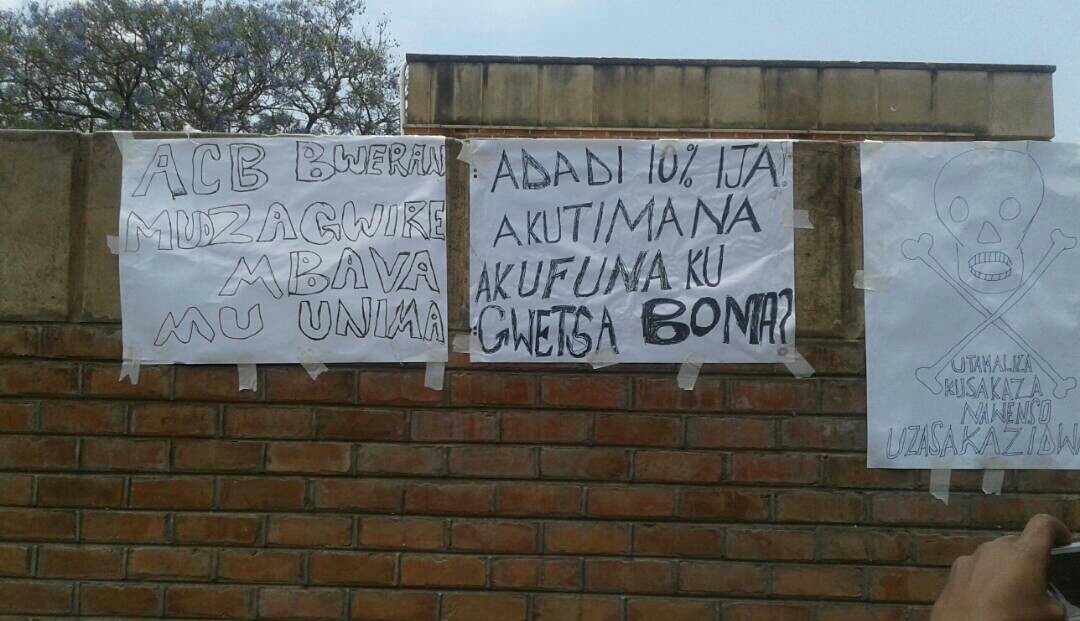 ACB BWERAN
MUDZAGWIRE
MBAVA
MU UNIMA
ADADI 10% IJA!
AKUTIMANA
AKUFUNA KU
GWETSA BOMA?
UTAMALIZA
KUSAKAZA
NAWENSO
UZASAKAZIDWA